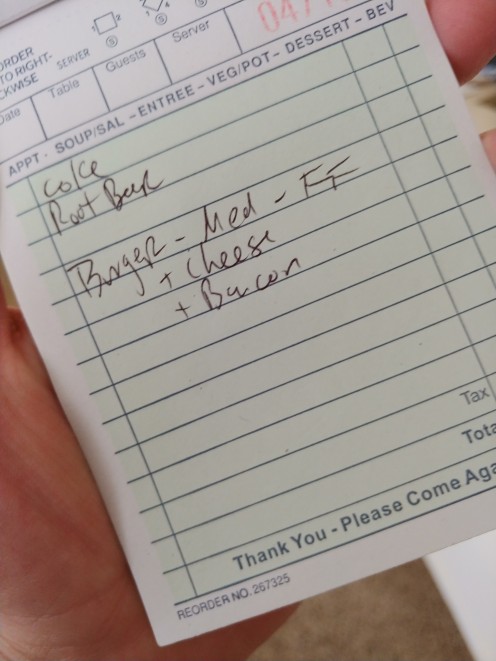 ORDER
TO RIGHT-
CKWISE
SERVER
Date
Table
Guests
Server
APPT - SOUP/SAL - ENTREE - VEG/POT - DESSERT - BEV
Coke
Root Beer
Burger - Med - FF
+ Cheese
+ Bacon
Tax
Tota
Thank You - Please Come Aga
REORDER NO. 267325